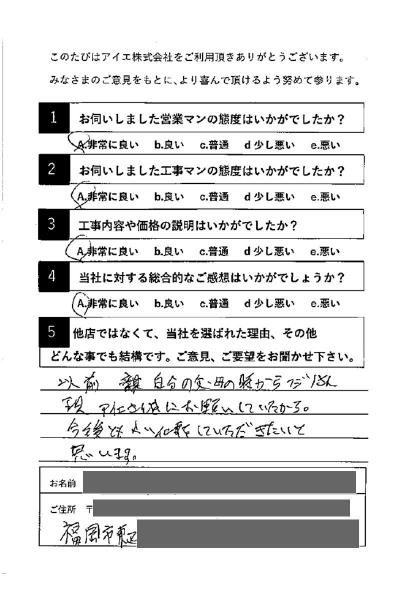 このたびはアイエ株式会社をご利用頂きありがとうございます。
みなさまのご意見をもとに、より喜んで頂けるよう努めて参ります。
1 お伺いしました営業マンの態度はいかがでしたか？
A.非常に良い b.良い c.普通 d 少し悪い e.悪い
2 お伺いしました工事マンの態度はいかがでしたか？
A.非常に良い b.良い c.普通 d 少し悪い e.悪い
3 工事内容や価格の説明はいかがでしたか？
A.非常に良い b.良い c.普通 d 少し悪い e.悪い
4 当社に対する総合的なご感想はいかがでしょうか？
A.非常に良い b.良い c.普通 d 少し悪い e.悪い
5 他店ではなくて、当社を選ばれた理由、その他
どんな事でも結構です。ご意見、ご要望をお聞かせ下さい。
以前 自分の
アイエさんにお願いしていたから。
今後とも良い仕事していただきたいと
思います。
お名前
ご住所 〒
福岡市東区